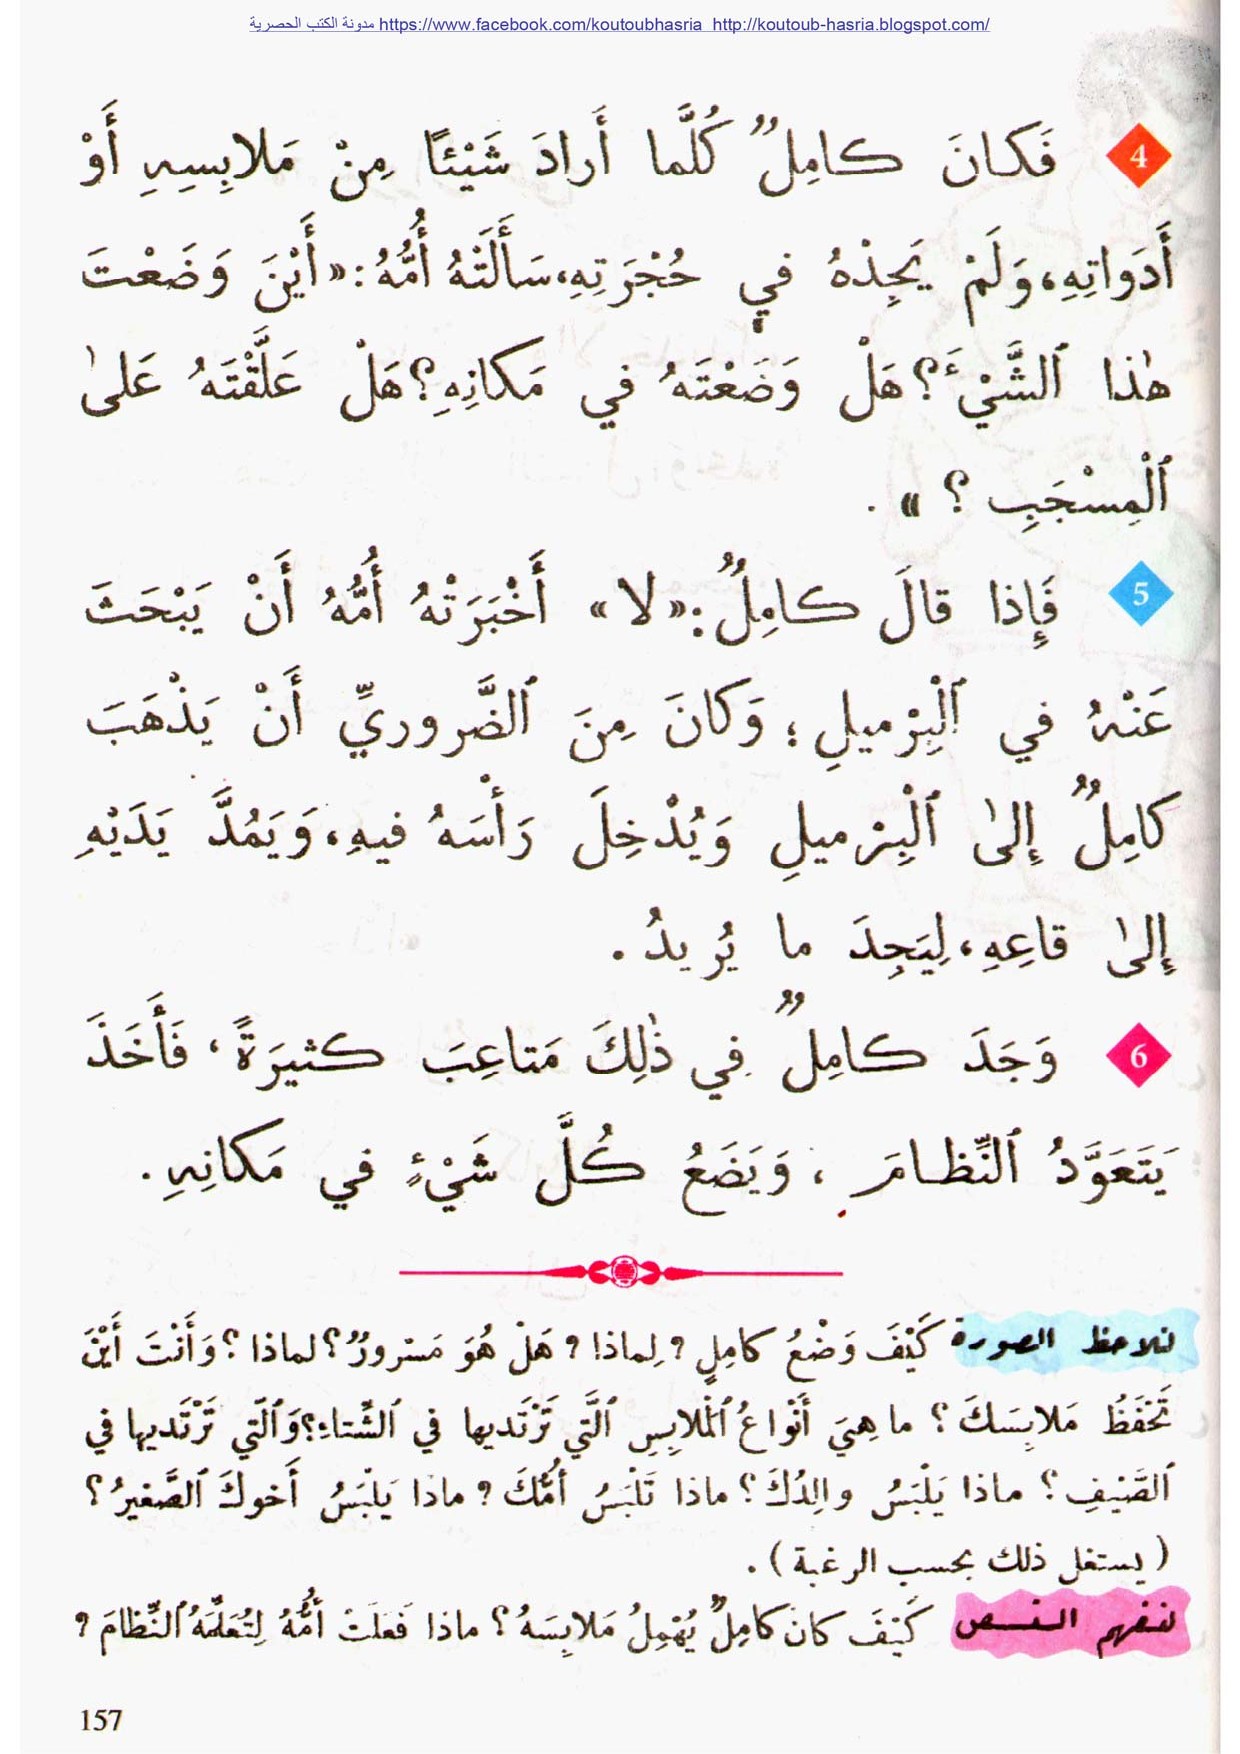 مدونة الكتب الحصرية https://www.facebook.com/koutoubhasria http://koutoub-hasria.blogspot.com/
4 فَكانَ كامِلٌ كُلَّما أَرادَ شَيْئًا مِنْ مَلابِسِهِ أَوْ
أَدَواتِهِ، وَلَمْ يَجِدْهُ في حُجْرَتِهِ، سَأَلَتْهُ أُمُّهُ: «أَيْنَ وَضَعْتَ
هٰذا ٱلشَّيْءَ؟ هَلْ وَضَعْتَهُ في مَكانِهِ؟ هَلْ عَلَّقْتَهُ عَلىٰ
ٱلْمِسْجَبِ ؟ » .
5 فَإِذا قالَ كامِلٌ: «لا» أَخْبَرَتْهُ أُمُّهُ أَنْ يَبْحَثَ
عَنْهُ في ٱلْبِرْميلِ ؛ وَكانَ مِنَ ٱلضَّروريِّ أَنْ يَذْهَبَ
كامِلٌ إِلىٰ ٱلْبِرْميلِ وَيُدْخِلَ رَأْسَهُ فيهِ، وَيَمُدَّ يَدَيْهِ
إِلىٰ قاعِهِ، لِيَجِدَ ما يُريدُ .
6 وَجَدَ كامِلٌ في ذٰلِكَ مَتاعِبَ كَثيرَةً ، فَأَخَذَ
يَتَعَوَّدُ ٱلنِّظامَ ، وَيَضَعُ كُلَّ شَيْءٍ في مَكانِهِ .
نلاحظ الصورة كَيْفَ وَضْعُ كامِلٍ ؟ لِماذا ؟ هَلْ هُوَ مَسْرورٌ؟ لماذا ؟ وَأَنْتَ أَيْنَ
تَحْفَظُ مَلابِسَكَ ؟ ما هِيَ أَنْواعُ ٱلْمَلابِسِ ٱلَّتي تَرْتَديها في ٱلشِّتاءِ؟ وَٱلَّتي تَرْتَديها في
ٱلصَّيْفِ ؟ ماذا يَلْبَسُ والِدُكَ ؟ ماذا تَلْبَسُ أُمُّكَ ؟ ماذا يَلْبَسُ أَخوكَ ٱلصَّغيرُ ؟
( يستغل ذلك بحسب الرغبة ) .
لنفهم النص كَيْفَ كانَ كامِلٌ يُهْمِلُ مَلابِسَهُ ؟ ماذا فَعَلَتْ أُمُّهُ لِتُعَلِّمَهُ ٱلنِّظامَ ؟
157